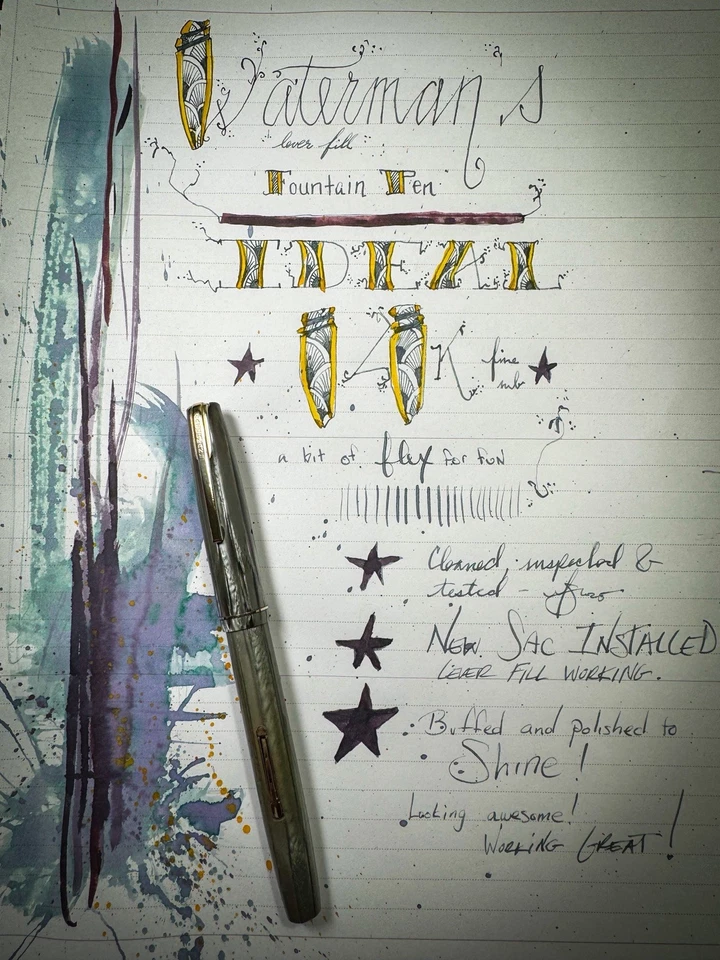 Waterman's
lever fill
Fountain Pen
IDEAL
14K fine
nib
a bit of flex FOR FUN
Cleaned, inspected &
tested -
NEW SAC INSTALLED
LEVER FILL WORKING.
Buffed and polished to
Shine!
Looking awesome!
WORKING GREAT!